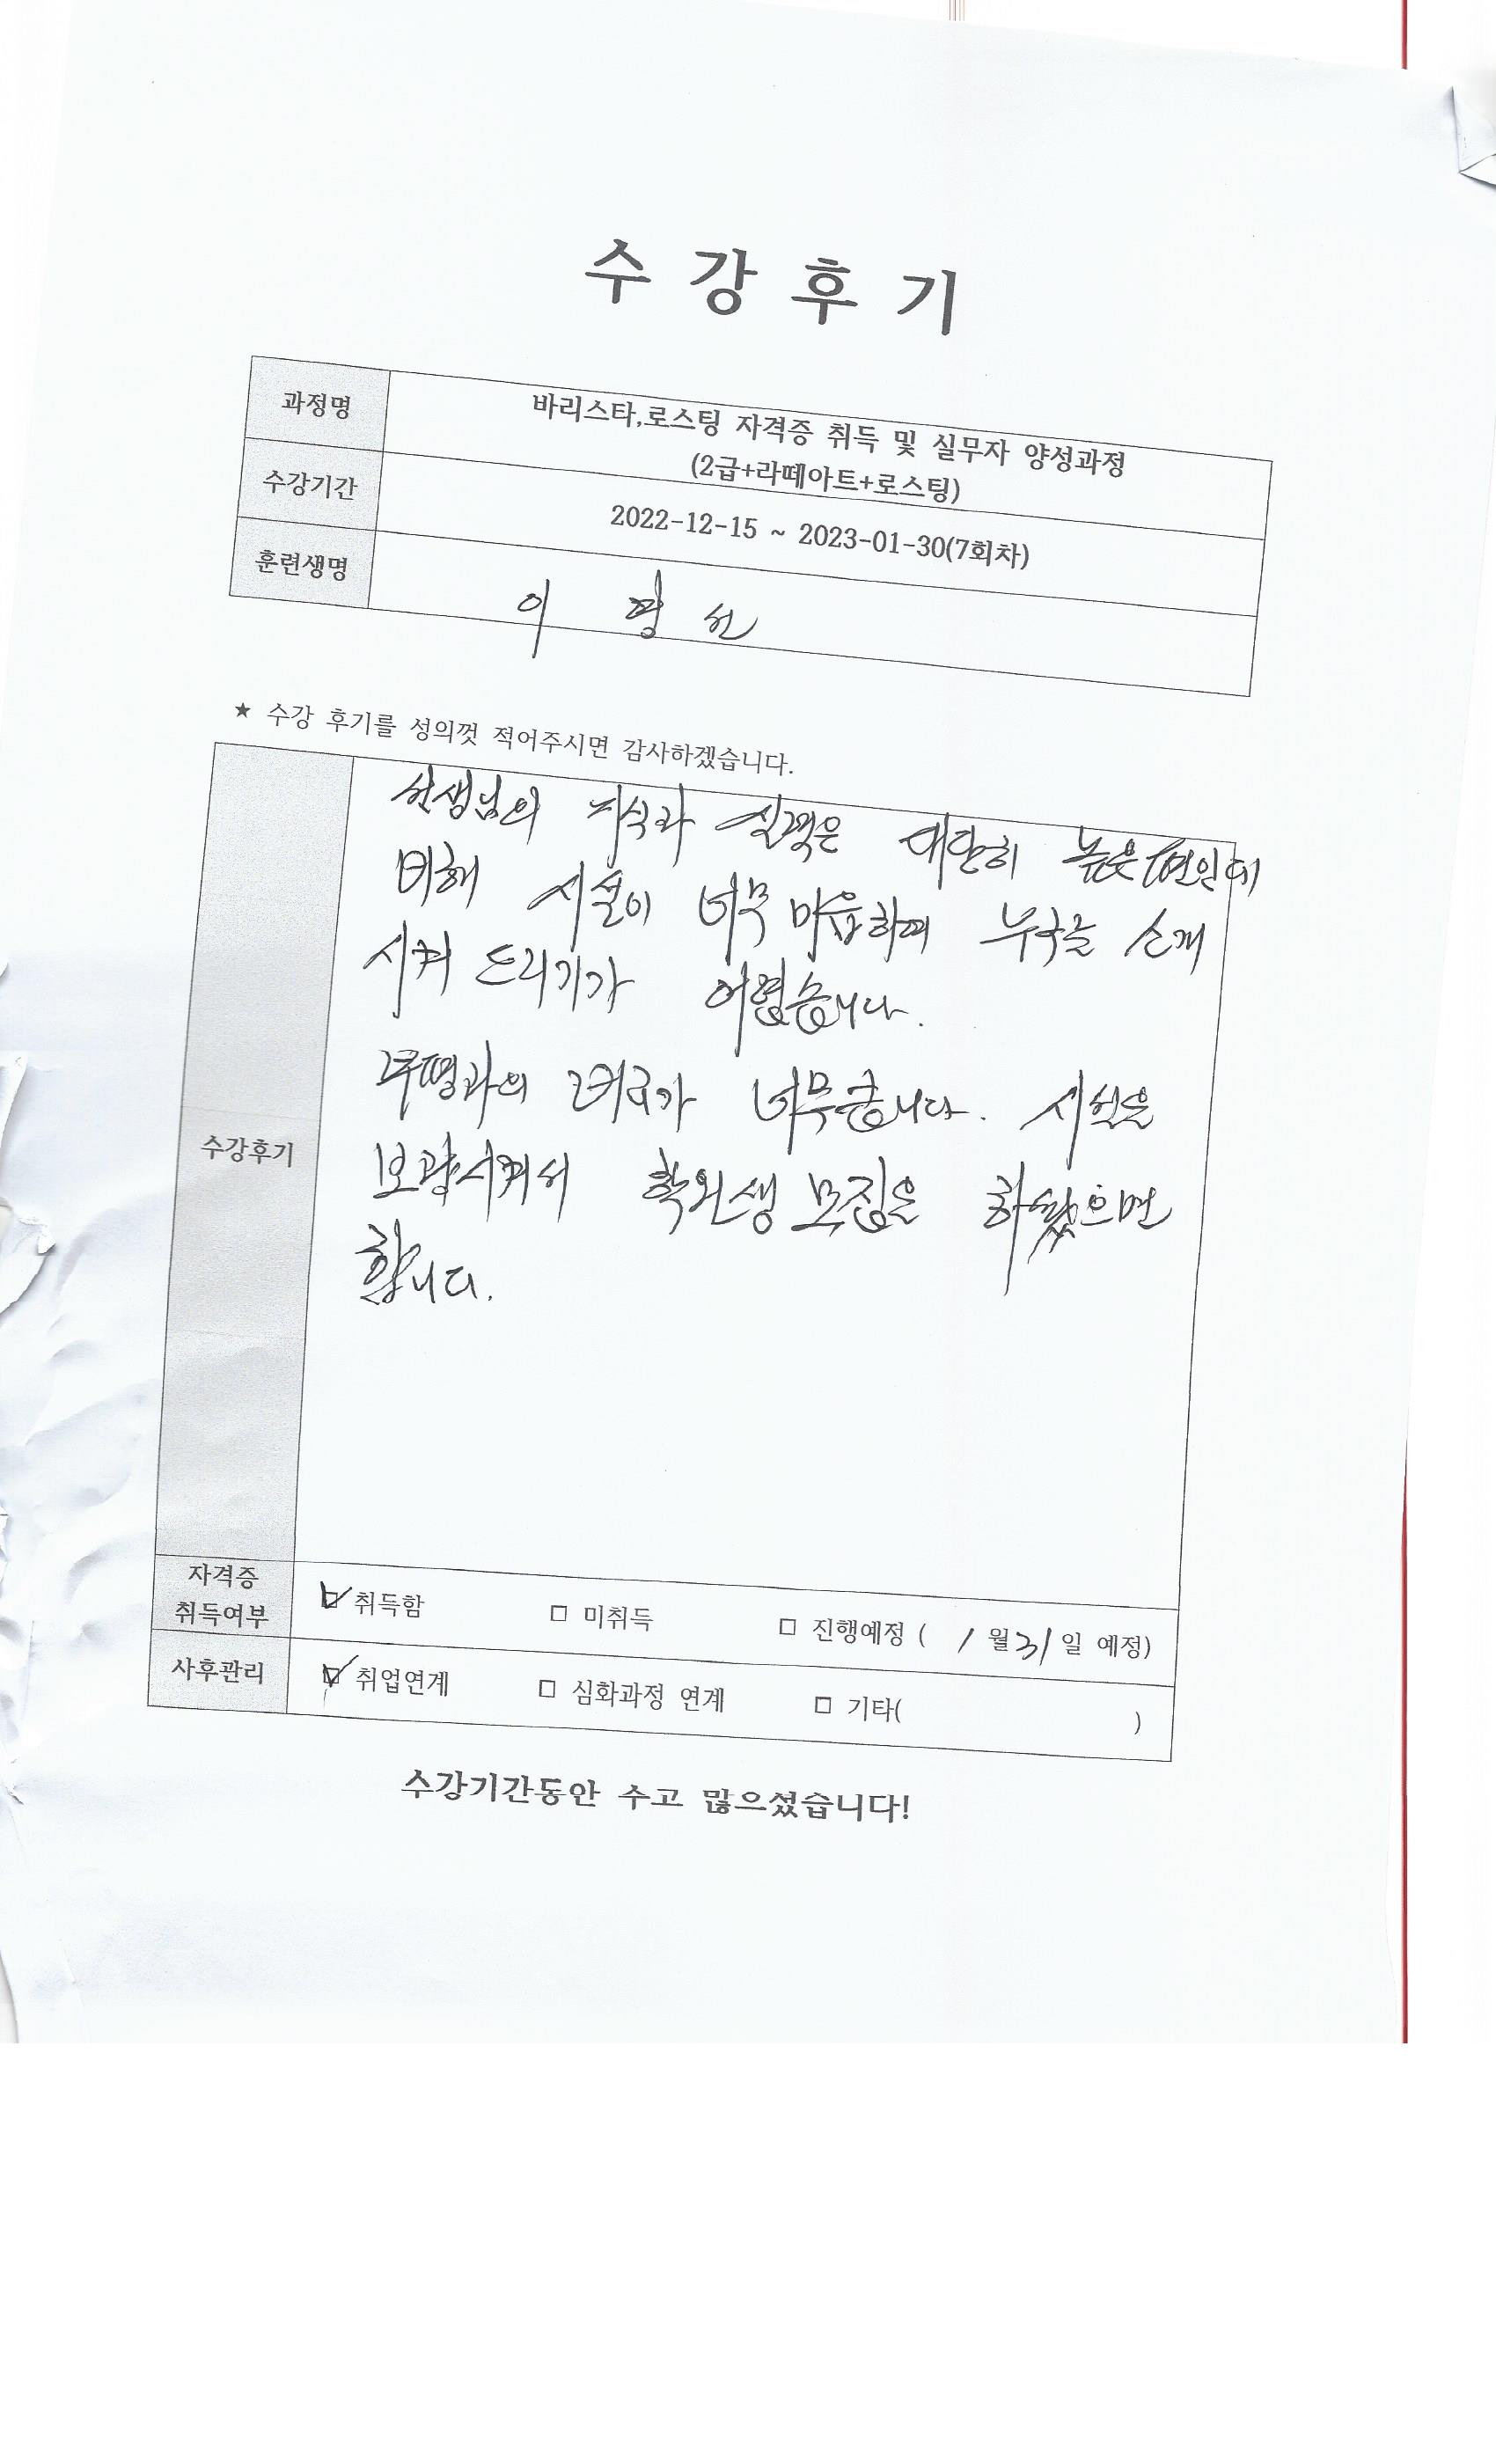 수강후기
과정명
바리스타,로스팅 자격증 취득 및 실무자 양성과정
(2급+라떼아트+로스팅)
수강기간
2022-12-15 ~ 2023-01-30(7회차)
훈련생명
이 명선
★ 수강 후기를 성의껏 적어주시면 감사하겠습니다.
수강후기
선생님의 지식과 실력은 대단히 높은 편인데
비해 시설이 너무 미흡하며 누구를 소개
시켜 드리기가 어렵습니다.
투명과의 거리가 너무큽니다. 시설을
보강시켜서 학원생 모집을 하셨으면
합니다.
자격증
취득여부
☑ 취득함 □ 미취득 □ 진행예정 ( 1월 31일 예정)
사후관리
☑ 취업연계 □ 심화과정 연계 □ 기타( )
수강기간동안 수고 많으셨습니다!